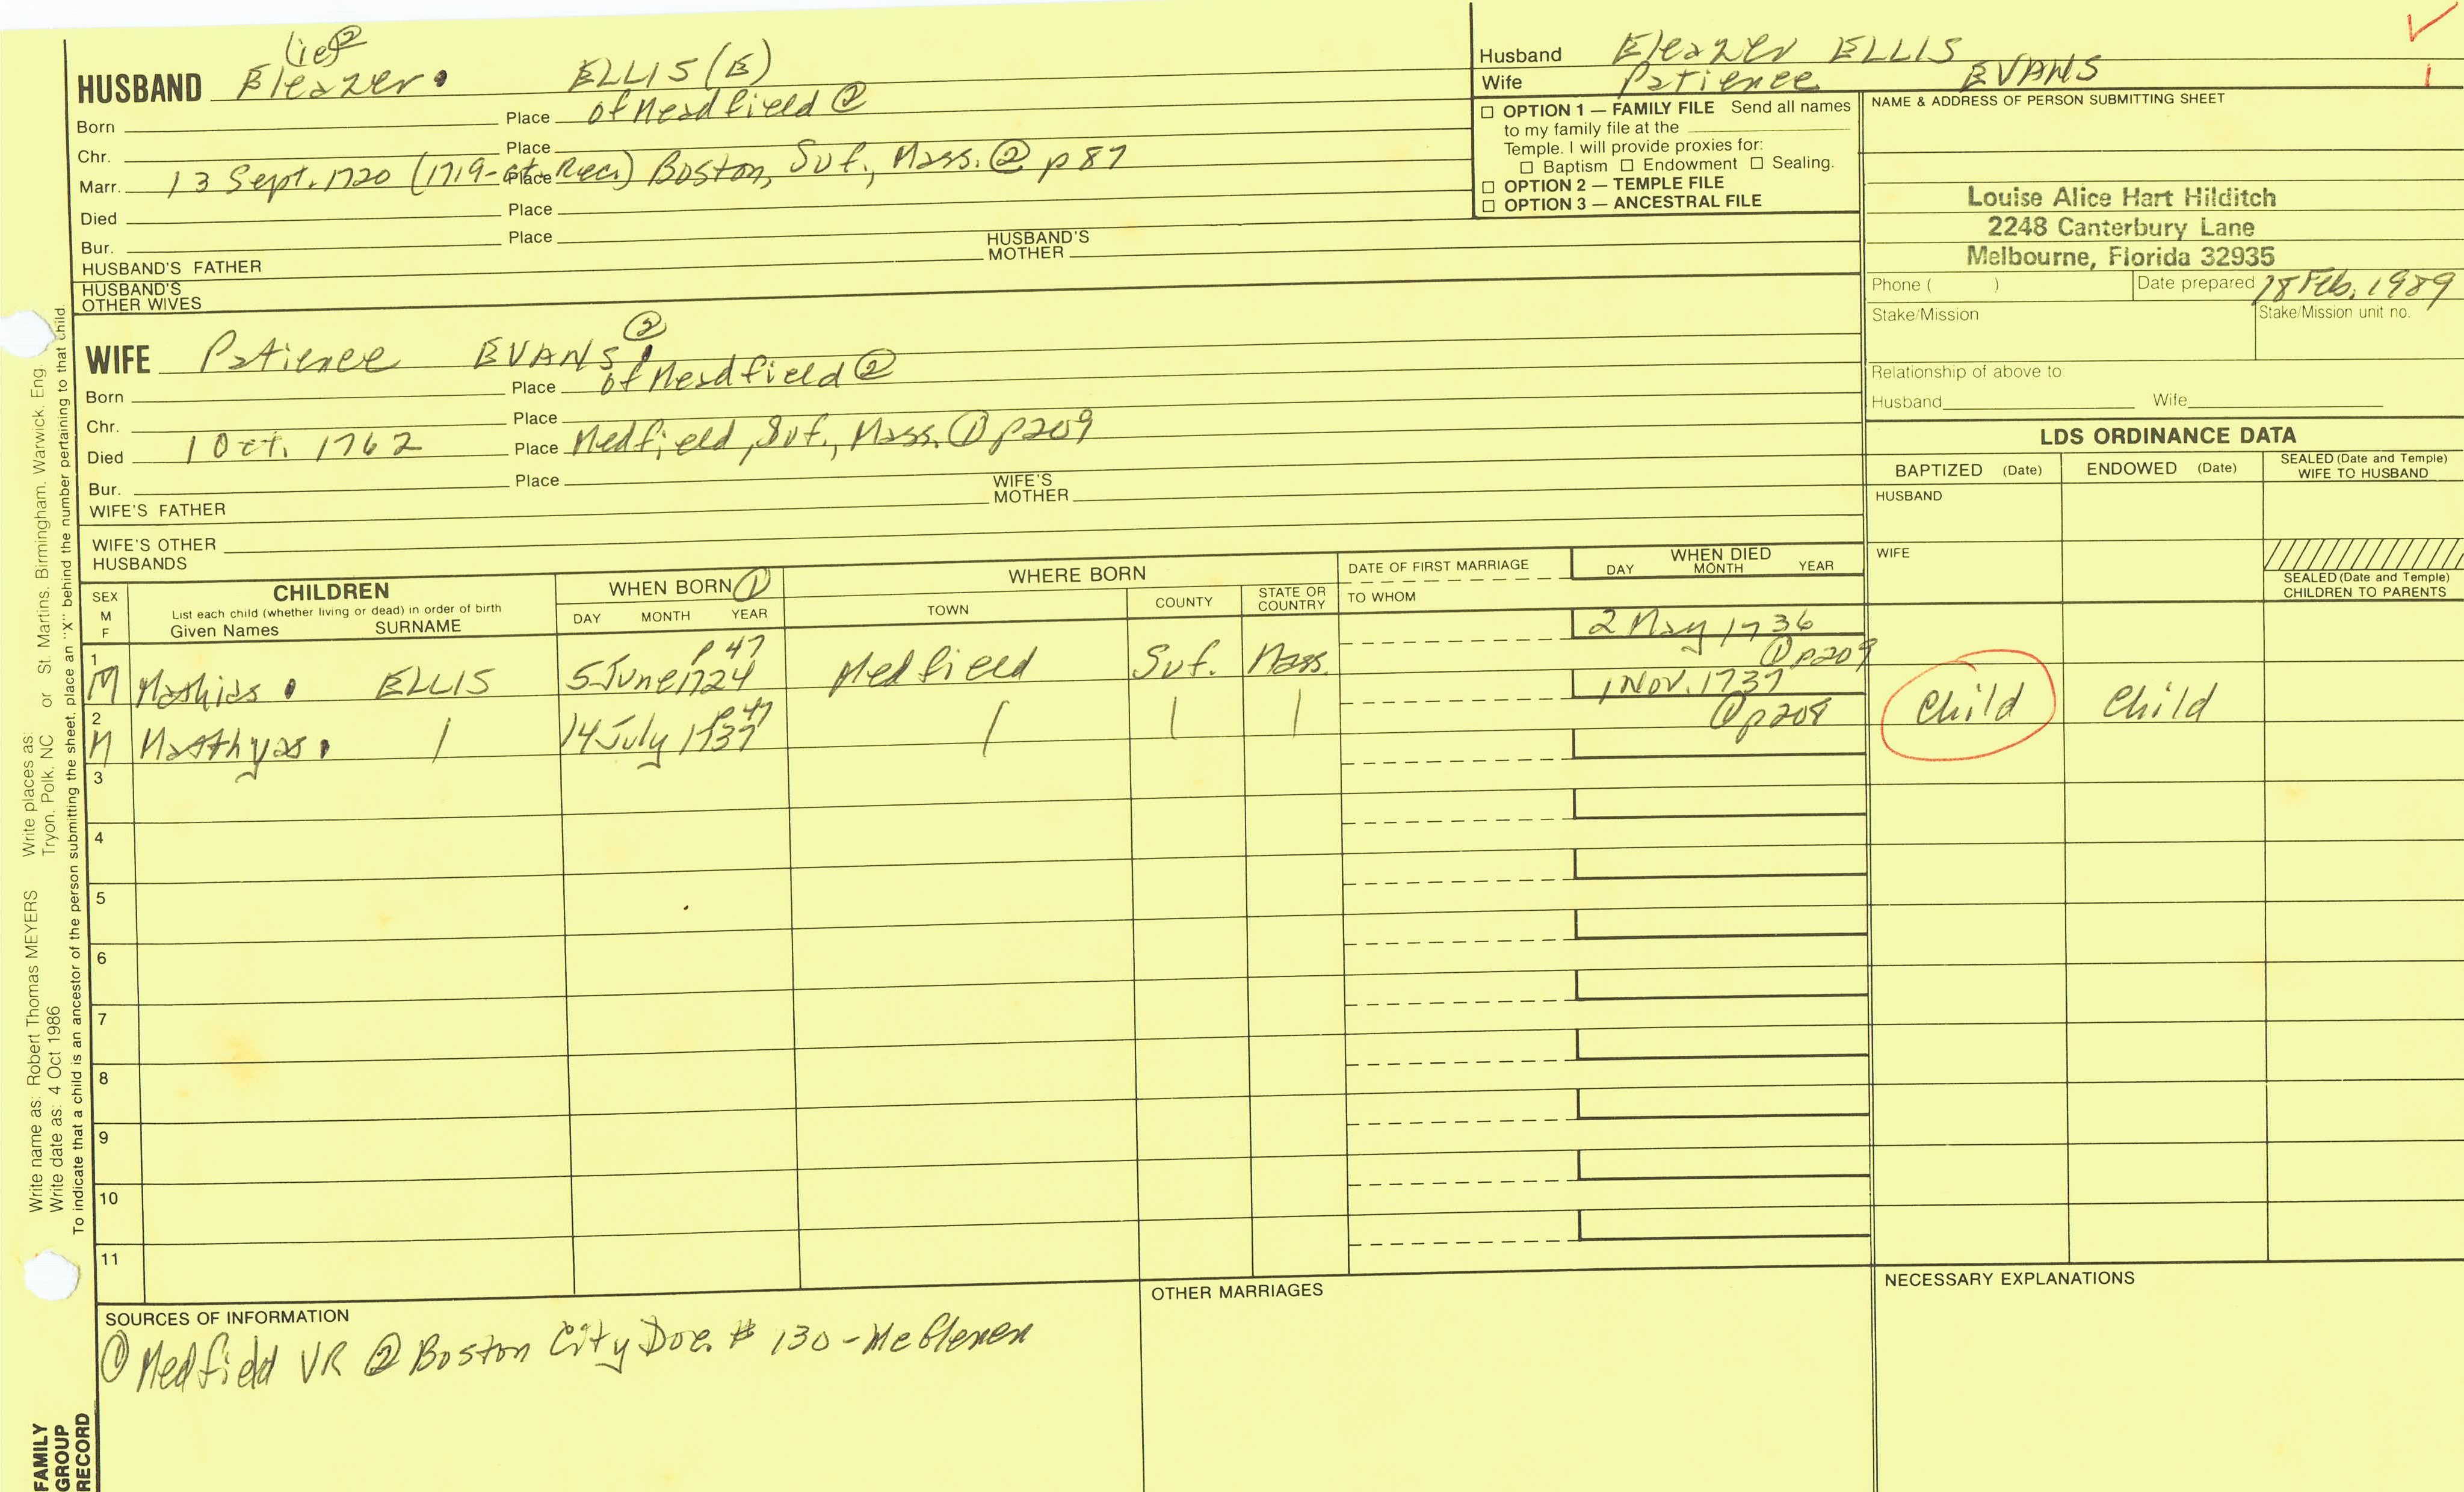 (ie② 
HUSBAND Eleazer ELLIS (E)
Born Place of Meadfield ②
Chr. Place
Marr. 13 Sept. 1720 (1719- ct. Rec.) Place Boston, Suf., Mass. ② p 87
Died Place
Bur. Place
HUSBAND'S FATHER HUSBAND'S MOTHER
HUSBAND'S OTHER WIVES
WIFE Patience EVANS ②
Born Place of Meadfield ②
Chr. Place
Died 1 Oct. 1762 Place Medfield, Suf., Mass. ① p209
Bur. Place
WIFE'S FATHER WIFE'S MOTHER
WIFE'S OTHER HUSBANDS
Husband Eleazer ELLIS
Wife Patience EVANS
☐ OPTION 1 — FAMILY FILE Send all names
to my family file at the
Temple. I will provide proxies for:
☐ Baptism ☐ Endowment ☐ Sealing.
☐ OPTION 2 — TEMPLE FILE
☐ OPTION 3 — ANCESTRAL FILE
NAME & ADDRESS OF PERSON SUBMITTING SHEET
Louise Alice Hart Hilditch
2248 Canterbury Lane
Melbourne, Florida 32935
Phone ( ) Date prepared 18 Feb. 1989
Stake/Mission Stake/Mission unit no.
Relationship of above to:
Husband Wife
LDS ORDINANCE DATA
BAPTIZED (Date) ENDOWED (Date) SEALED (Date and Temple) WIFE TO HUSBAND
HUSBAND
WIFE
SEALED (Date and Temple)
CHILDREN TO PARENTS
SEX
M
F
CHILDREN
List each child (whether living or dead) in order of birth
Given Names SURNAME
WHEN BORN ①
DAY MONTH YEAR
WHERE BORN
TOWN COUNTY STATE OR COUNTRY
DATE OF FIRST MARRIAGE
TO WHOM
WHEN DIED
DAY MONTH YEAR
1 M Mathias ELLIS p 47 5 June 1724 Medfield Suf. Mass. 2 May 1736 ① p209
2 M Matthyas p 47 14 July 1737 1 Nov. 1737 ① p208 Child Child
3
4
5
6
7
8
9
10
11
SOURCES OF INFORMATION
① Medfield VR ② Boston City Doc. # 130 -
OTHER MARRIAGES
NECESSARY EXPLANATIONS
Write name as: Robert Thomas MEYERS Write places as: St. Martins, Birmingham, Warwick, Eng.
Write date as: 4 Oct 1986 Tryon, Polk, NC or
To indicate that a child is an ancestor of the person submitting the sheet, place an "X" behind the number pertaining to that child.
FAMILY
GROUP
RECORD